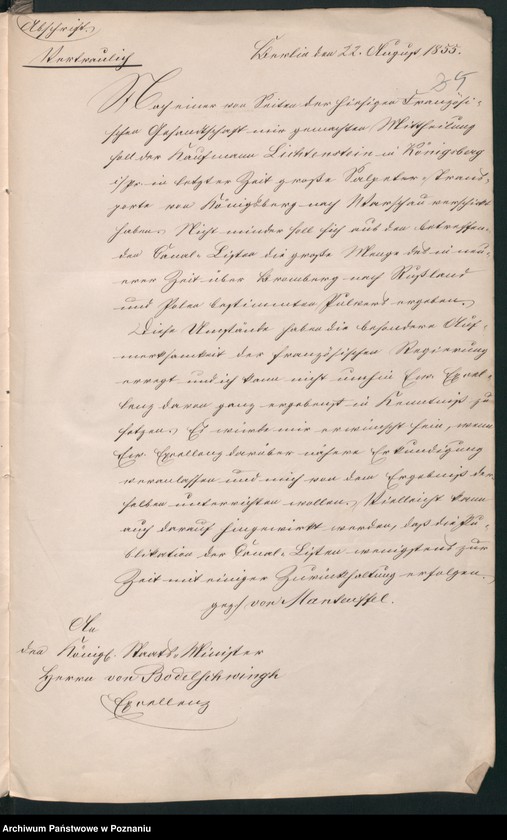 Abschrift.
Vertraulich
Berlin den 22. August 1855.
Nach einer von Seiten der hiesigen Französi-
schen Gesandtschaft mir gemachten Mittheilung
soll der Kaufmann Lichtenstein in Königsberg
i/pr. in letzter Zeit große Salpeter-Trans-
porte von Königsberg nach Warschau verschickt
haben. Nicht minder soll sich aus den betreffen-
den Canal-Listen die große Menge des in neu-
erer Zeit über Bromberg nach Rußland
und Polen bestimmten Pulvers ergeben.
Diese Umstände haben die besondere Auf-
merksamkeit der französischen Regierung
erregt und ich kann nicht umhin Ew. Excel-
lenz davon ganz ergebenst in Kenntniß zu
setzen. Es würde mir erwünscht sein, wenn
Ew. Excellenz darüber nähere Erkundigung
veranlassen und mich von dem Ergebniß der-
selben unterrichten wollen. Vielleicht kann
auch darauf hingewirkt werden, daß die Pu-
blikation der Canal-Listen wenigstens zur
Zeit mit einiger Zurückhaltung erfolgen.
gez. von Manteuffel.
An
den Königl. Staats-Minister
Herrn von Bodelschwingh
Excellenz
Archiwum Państwowe w Poznaniu